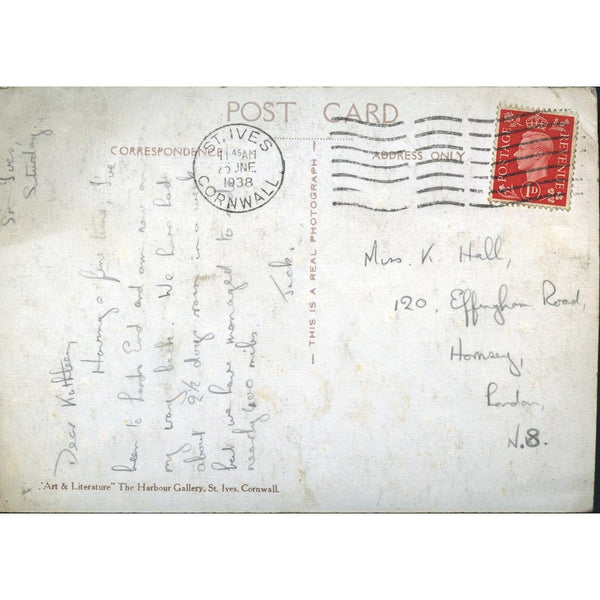 POST CARD
CORRESPONDENCE
ADDRESS ONLY
ST. IVES
11 45 AM
JNE
1938
CORNWALL
POSTAGE
REVENUE
1D
St Ives,
Saturday.
Dear Kathleen,
Having a fine time, I've
been to Lands End and am now on
my way back. We have had
about 2½ days rain in a week
but we have managed to do
nearly 600 miles.
Jack.
— THIS IS A REAL PHOTOGRAPH —
Miss K. Hall,
120. Effingham Road,
Hornsey,
London,
N.8.
"Art & Literature" The Harbour Gallery, St. Ives, Cornwall.